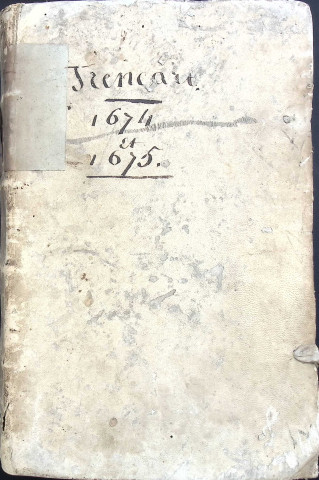 Trencart.
1674
et
1675.